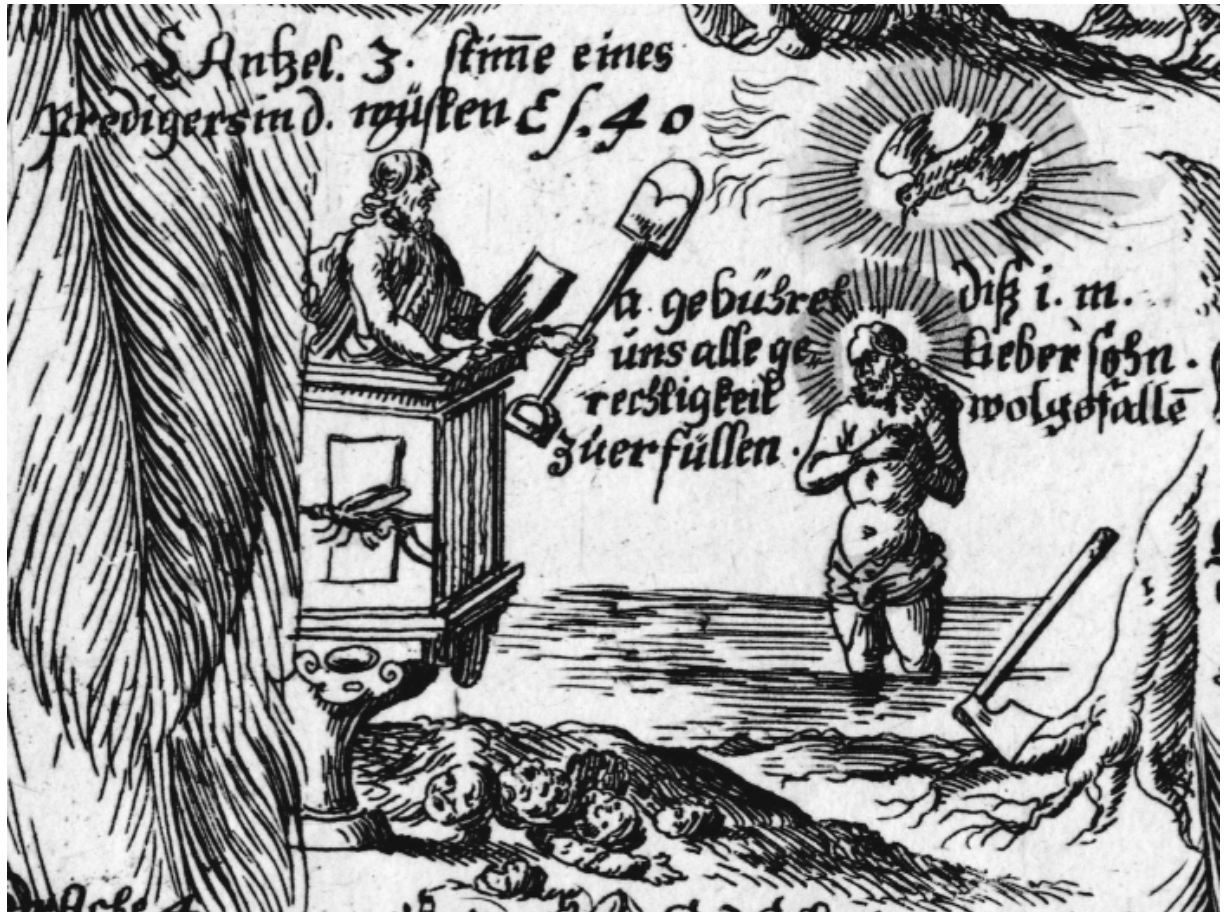 Antzel. 3. stim̄e eines
predigers in d. wüsten Es. 40
a. gebühret
uns alle ge
rechtigkeit
zuerfüllen.
diß i. m.
lieber sohn.
wolgefallē